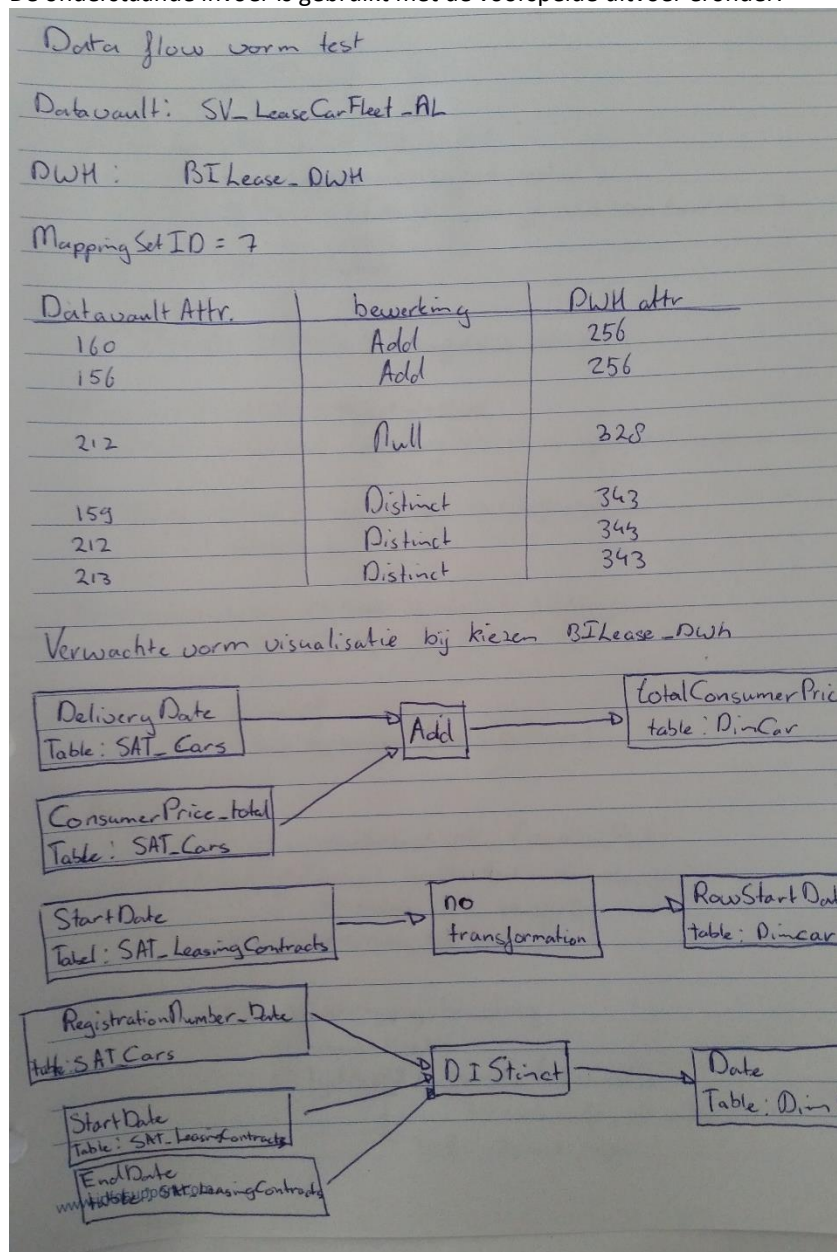 De onderstaande invoer is gebruikt met de voorspelde uitvoer eronder:
Data flow vorm test
Datavault: SV_LeaseCarFleet_AL
DWH: BILease_DWH
MappingSetID = 7
Datavault Attr. bewerking DWH attr
160 Add 256
156 Add 256
212 Null 328
159 Distinct 343
212 Distinct 343
213 Distinct 343
Verwachte vorm visualisatie bij kiezen BILease_Dwh
DeliveryDate
Table: SAT_Cars
Add
totalConsumerPric
table: DimCar
ConsumerPrice_total
Table: SAT_Cars
StartDate
Tabel: SAT_LeasingContracts
no
transformation
RowStartDat
table: Dimcar
RegistrationNumber_Date
table: SAT_Cars
DIStinct
Date
Table: Dim
StartDate
Table: SAT_LeasingContracts
EndDate
SAT_LeasingContracts